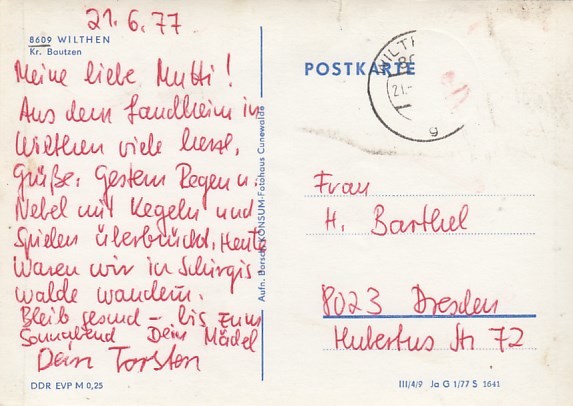 21.6.77
8609 WILTHEN
Kr. Bautzen
Meine liebe Mutti!
Aus dem Landheim in
Wilthen viele herzl.
Grüße. Gestern Regen u.
Nebel mit Kegeln und
Spielen überbrückt, Heute
waren wir in Schirgis
walde wandern.
Bleib gesund – bis zum
Sonnabend Dein Mädel
Dein Torsten
DDR EVP M 0,25
Aufn. Borsch KONSUM-Fotohaus Cunewalde
POSTKARTE
WILTH
21.
g
Frau
H. Barthel
8023 Dresden
Hubertus Str. 72
III/4/9 Ja G 1/77 S 1641